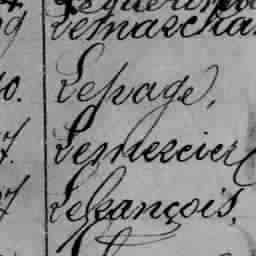 9 Lemarcha
0. Lepage,
7. Lemercier
7 Lefrançois,